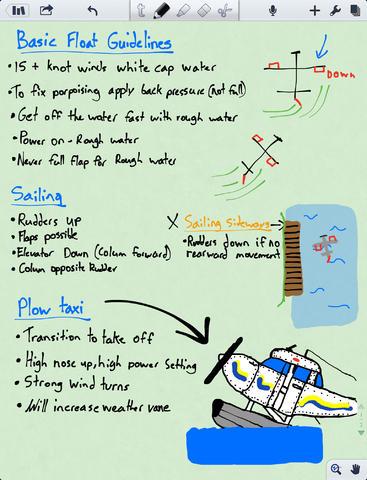 Basic Float Guidelines
• 15 + knot winds white cap water
• To fix porpoising apply back pressure (not full)
• Get off the water fast with rough water
• Power on - Rough water
• Never full flap for Rough water
DOWN
Sailing
• Rudders up
• Flaps possible
• Elevator Down (Colum forward)
• Colum opposite Rudder
X Sailing sideways
• Rudders down if no
rearward movement
Plow taxi
• Transition to take off
• High nose up, high power setting
• Strong wind turns
• Will increase weather vane